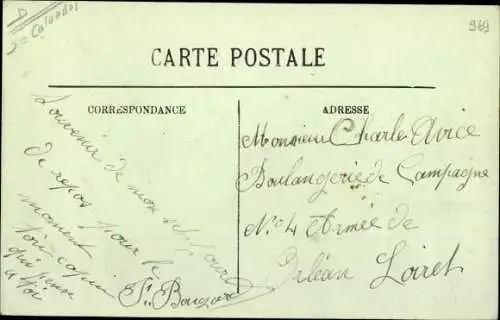 D
Calvados
969
CARTE POSTALE
CORRESPONDANCE
ADRESSE
Souvenir de mon séjour
de repos pour le
moment
ton copin
qui pense
a toi
Monsieur Charle Avice
Boulangerie de Campagne
No 4 Armée de
Orléan Loiret